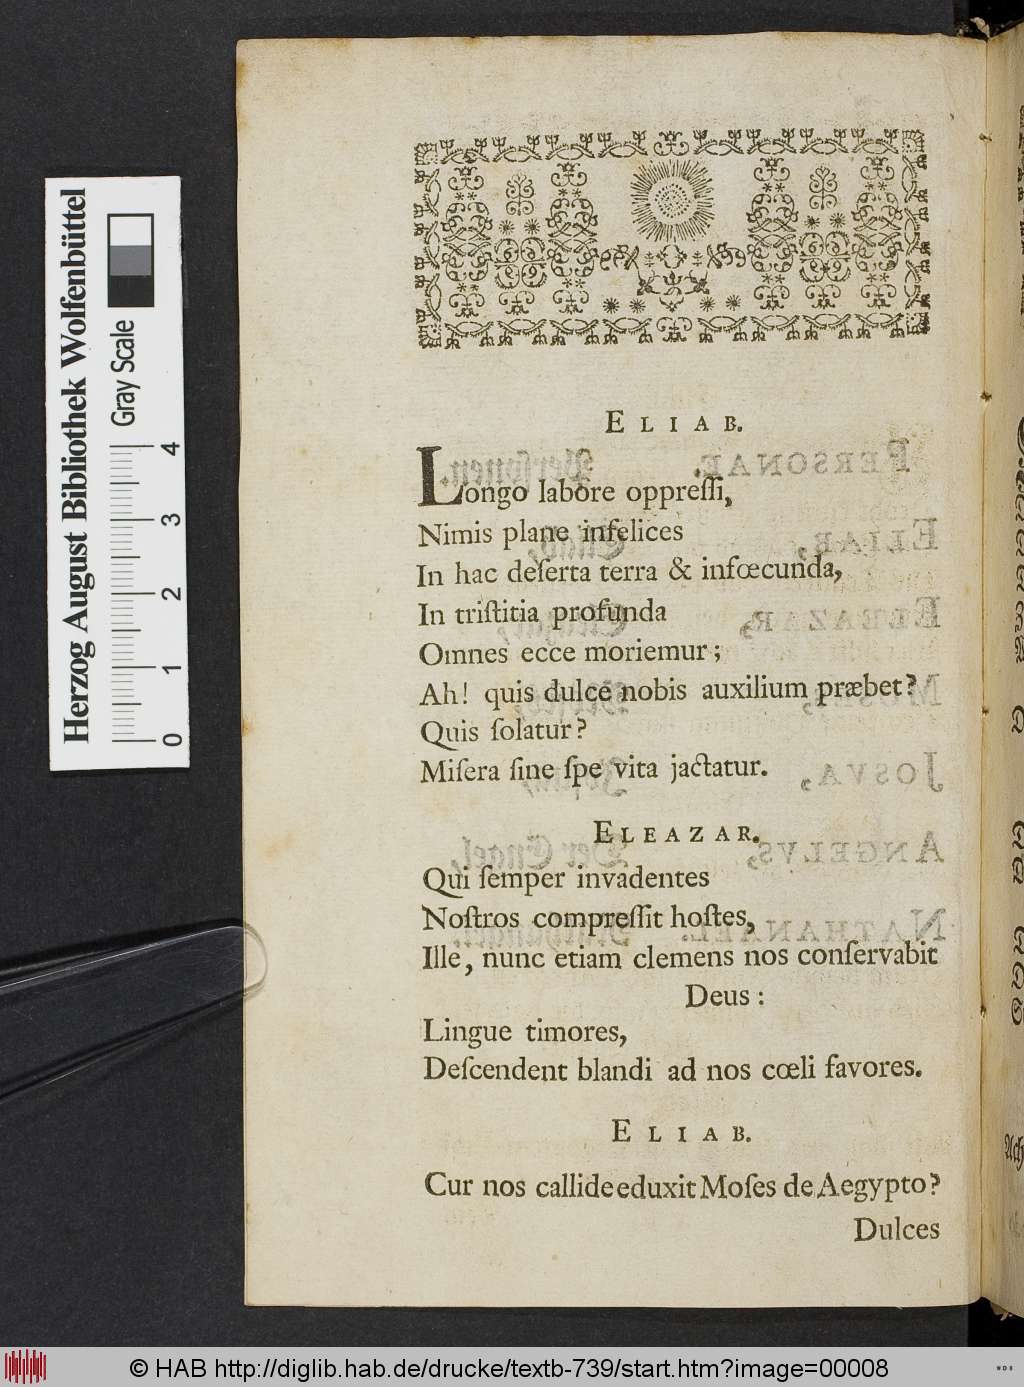 ELIAB.
Longo labore oppreſſi,
Nimis plane infelices
In hac deſerta terra & infœcunda,
In triſtitia profunda
Omnes ecce moriemur;
Ah! quis dulce nobis auxilium præbet?
Quis ſolatur?
Miſera ſine ſpe vita jactatur.
ELEAZAR.
Qui ſemper invadentes
Noſtros compreſſit hoſtes,
Ille, nunc etiam clemens nos conſervabit
Deus:
Lingue timores,
Deſcendent blandi ad nos cœli favores.
ELIAB.
Cur nos callide eduxit Moſes de Aegypto?
Dulces
Herzog August Bibliothek Wolfenbüttel
Gray Scale
0 1 2 3 4
© HAB http://diglib.hab.de/drucke/textb-739/start.htm?image=00008